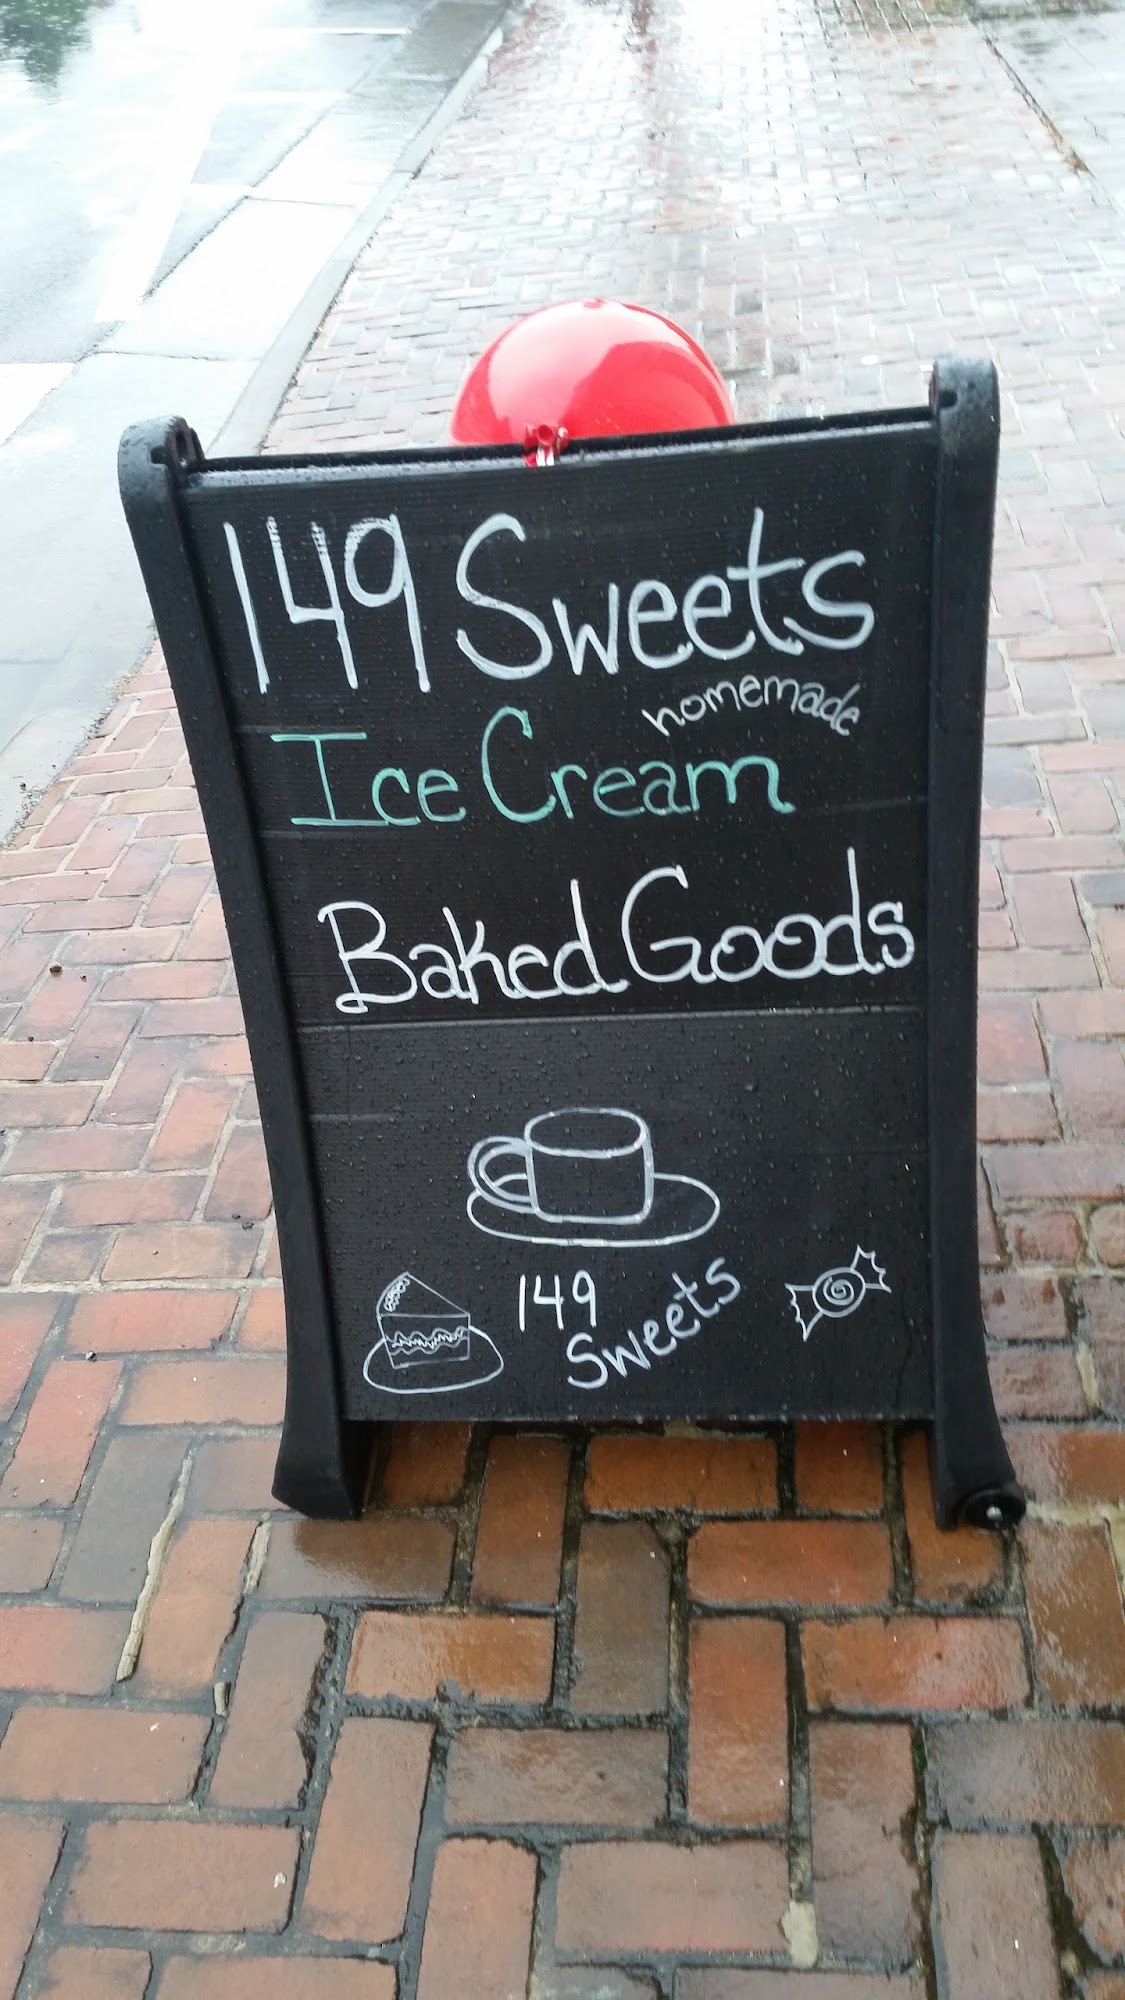 149 Sweets
homemade
Ice Cream
Baked Goods
149
Sweets